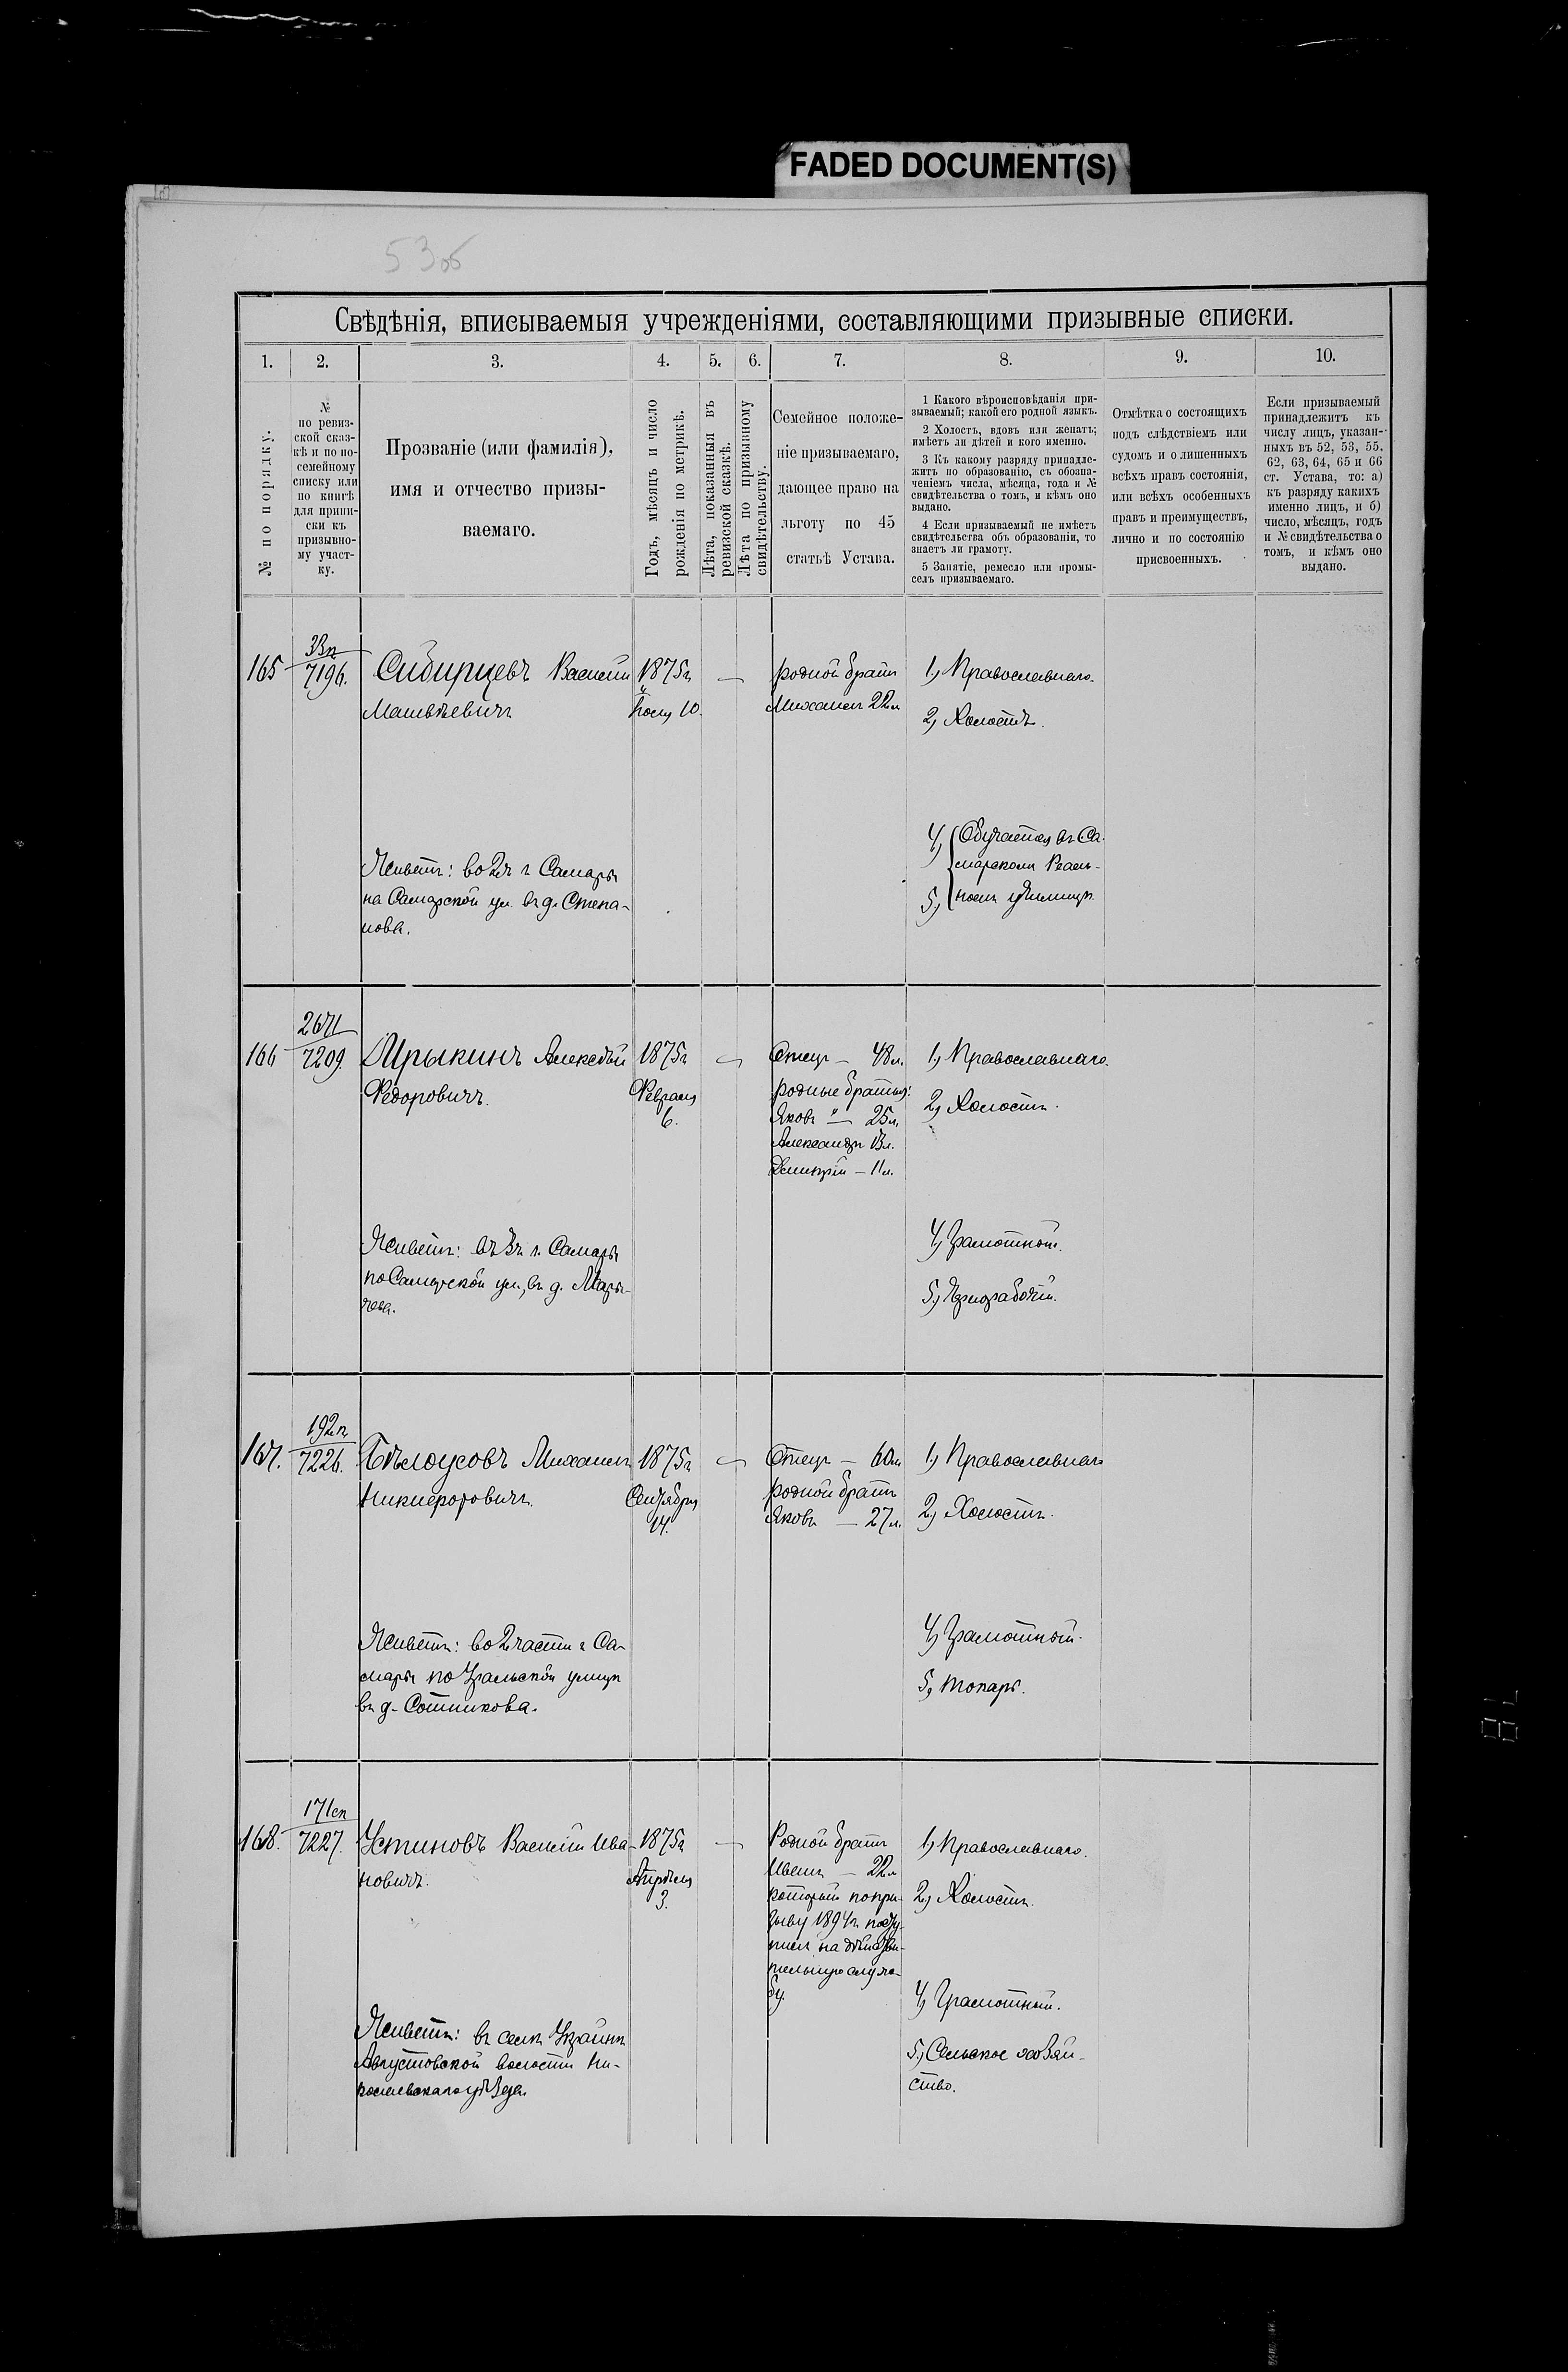 FADED DOCUMENT(S)
53об
Свѣдѣнія, вписываемыя учрежденіями, составляющими призывные списки.
1. 2. 3. 4. 5. 6. 7. 8. 9. 10.
№ по порядку.
№
по ревиз-
ской сказ-
кѣ и по по-
семейному
списку или
по книгѣ
для припи-
ски къ
призывно-
му участ-
ку.
Прозваніе (или фамилія),
имя и отчество призы-
ваемаго.
Годъ, мѣсяцъ и число
рожденія по метрикѣ.
Лѣта, показанныя въ
ревизской сказкѣ.
Лѣта по призывному
свидѣтельству.
Семейное положе-
ніе призываемаго,
дающее право на
льготу по 45
статьѣ Устава.
1 Какого вѣроисповѣданія при-
зываемый; какой его родной языкъ.
2 Холостъ, вдовъ или женатъ;
имѣетъ ли дѣтей и кого именно.
3 Къ какому разряду принадле-
житъ по образованію, съ обозна-
ченіемъ числа, мѣсяца, года и №
свидѣтельства о томъ, и кѣмъ оно
выдано.
4 Если призываемый не имѣетъ
свидѣтельства объ образованіи, то
знаетъ ли грамоту.
5 Занятіе, ремесло или промы-
селъ призываемаго.
Отмѣтка о состоящихъ
подъ слѣдствіемъ или
судомъ и о лишенныхъ
всѣхъ правъ состоянія,
или всѣхъ особенныхъ
правъ и преимуществъ,
лично и по состоянію
присвоенныхъ.
Если призываемый
принадлежитъ къ
числу лицъ, указан-
ныхъ въ 52, 53, 55,
62, 63, 64, 65 и 66
ст. Устава, то: а)
къ разряду какихъ
именно лицъ, и б)
число, мѣсяцъ, годъ
и № свидѣтельства о
томъ, и кѣмъ оно
выдано.
165
7196.
Сибирцевъ Василій
Матвѣевичъ
1875г
10.
—
родной братъ
Михаилъ 22л
1, Православнаго.
2, Холостъ.
4,
5,
Обучается въ Са-
марскомъ Реаль-
номъ училищѣ.
Живетъ: во 2ч г Самары
на Самарской ул. въ д. Степа-
нова.
166
7209.
Мрыкинъ Алексѣй
Федоровичъ.
1875г
Февраля
6.
—
Отецъ — 48л.
родные братья:
Яковъ " — 25л,
Александръ 13л.
Дмитрій — 11л.
1, Православнаго.
2, Холостъ.
4, Грамотный.
5, Чернорабочій.
Живетъ: въ 3ч г. Самары
по Самарской ул., въ д. Мары-
чева.
167.
192п
7226.
Бѣлоусовъ Михаилъ
Никифоровичъ.
1875г
Сентября
14.
—
Отецъ — 60л
родной братъ
Яковъ — 27л.
1, Православнаго
2, Холостъ.
4, Грамотный.
5, Токарь.
Живетъ: во 2 части г Са-
мары по Уральской улицѣ
въ д. Сотникова.
168.
171сп
7227.
Устиновъ Василій Ива-
новичъ.
1875г
Апрѣля
3.
—
Родной братъ
Иванъ — 22л
который по при-
зыву 1894г. посту-
пилъ на дѣйстви-
тельную служ-
бу.
1, Православнаго.
2, Холостъ.
4, Грамотный.
5, Сельское хозяй-
ство.
Живетъ: въ селѣ Украинкѣ
Августовской волости Ни-
колаевскаго уѣзда.